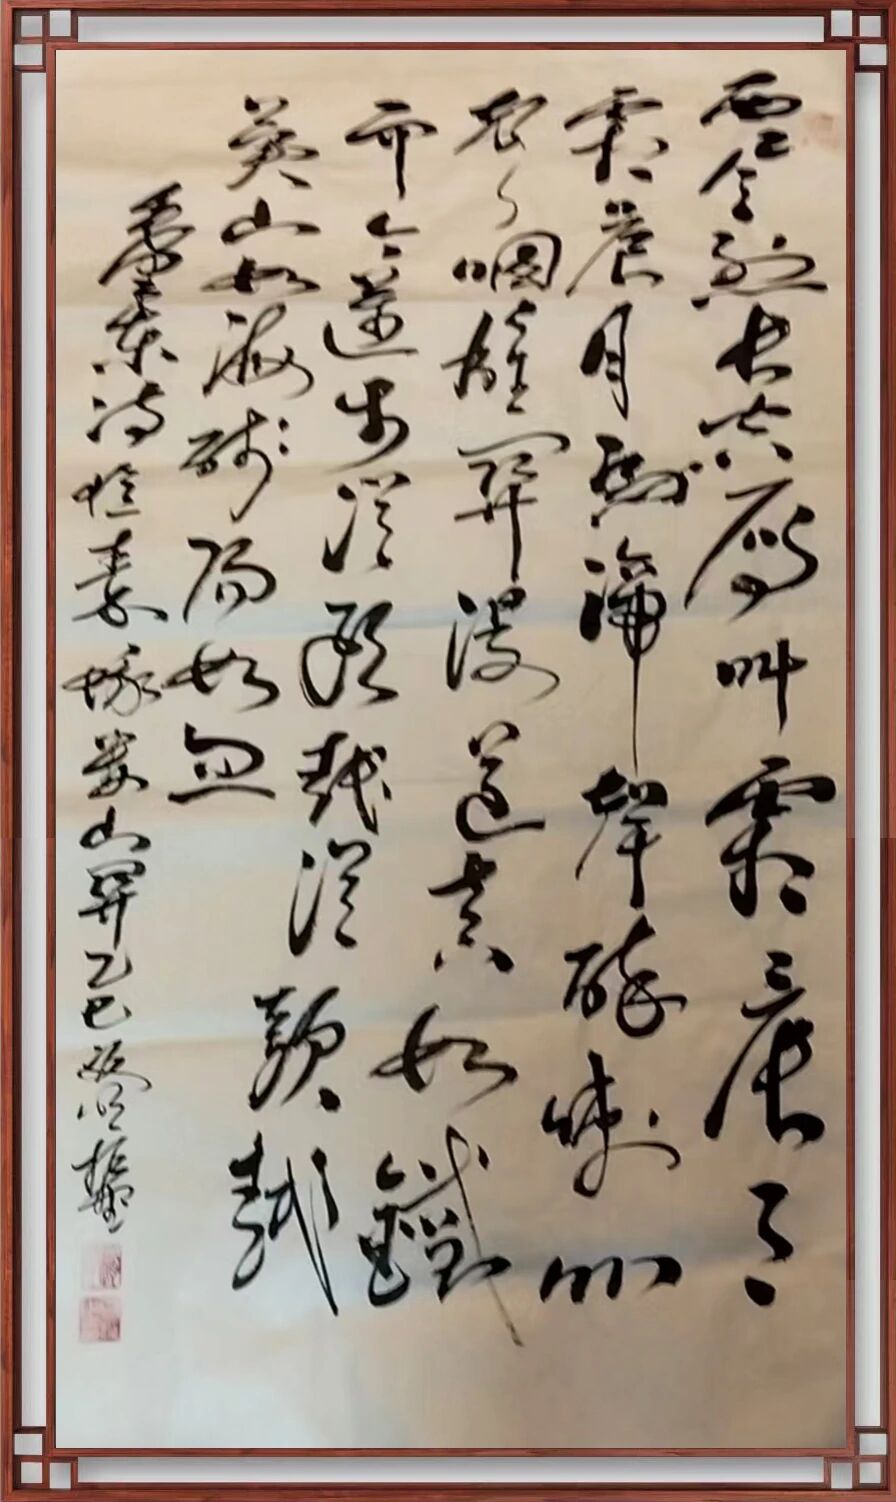 西風烈長空雁叫霜晨月
霜晨月馬蹄聲碎喇叭
聲咽雄關漫道真如鐵
而今邁步從頭越從頭越
蒼山如海殘陽如血
毛澤東詩憶秦娥婁山關乙巳